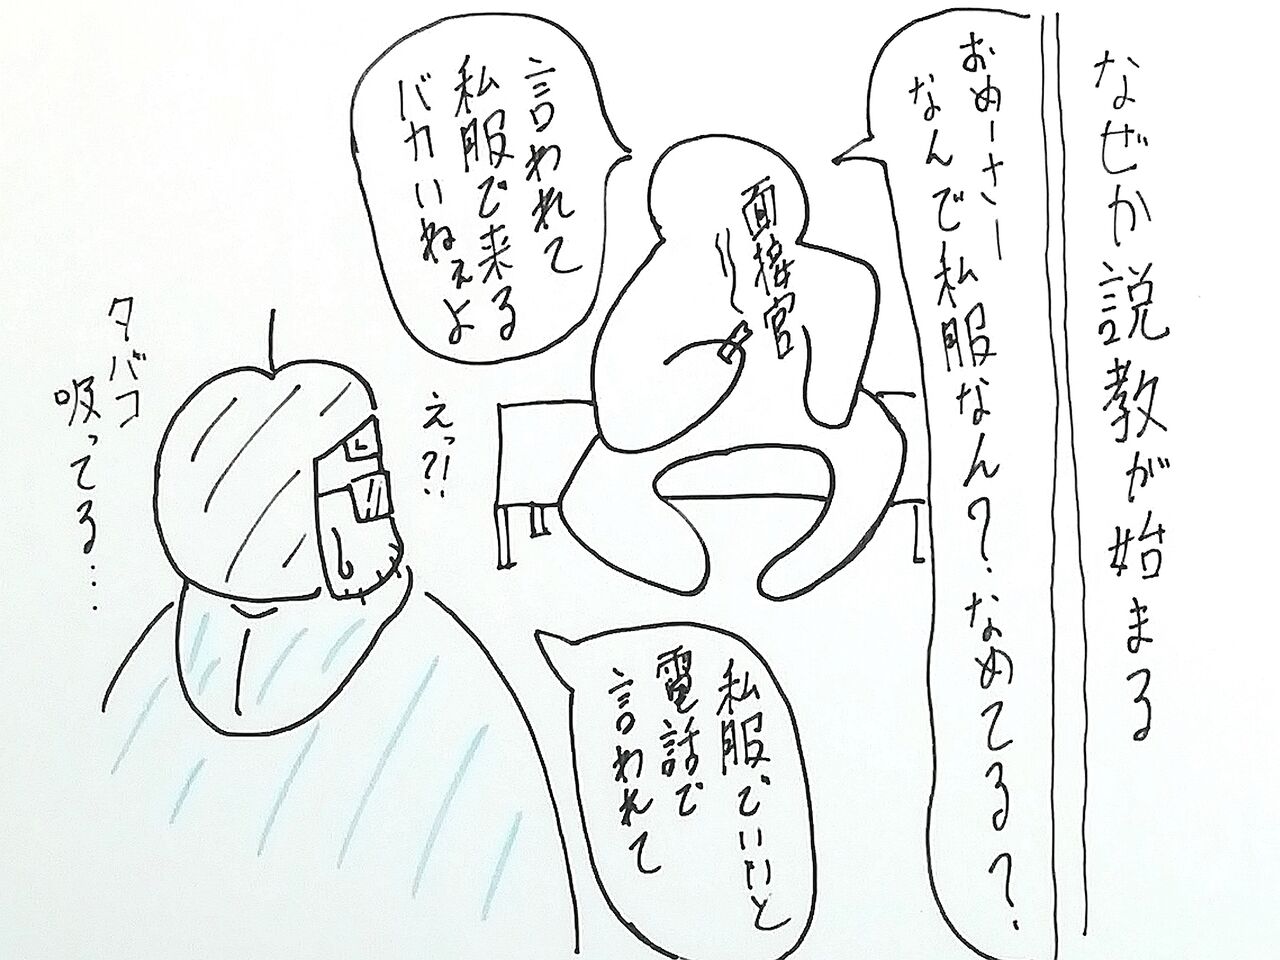 なぜか説教が始まる
おめーさー
なんで私服なん?なめてる?
面接官
私服でいいと
電話で
言われて
言われて
私服で来る
バカいねぇよ
えっ?!
タバコ
吸ってる…